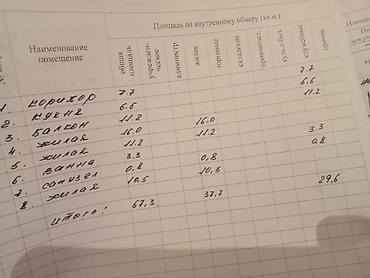 Площадь по внутреннему обмеру (кв.м.)
Наименование помещение
общая площадь
учрежден-ческое
администр
жилая
торговые
складские
производст.
культ-просв.
служебные
прочие
1. коридор 7.7 7.7
2. кухня 6.6 6.6
3. балкон 11.2 11.2
4. жилая 16.0 16.0
5. жилая 11.2 11.2
6. ванна 3.3 3.3
7. санузел 0,8 0,8 0.8
8. жилая 10,5 10,5
итого: 67,3. 37,7 29,6